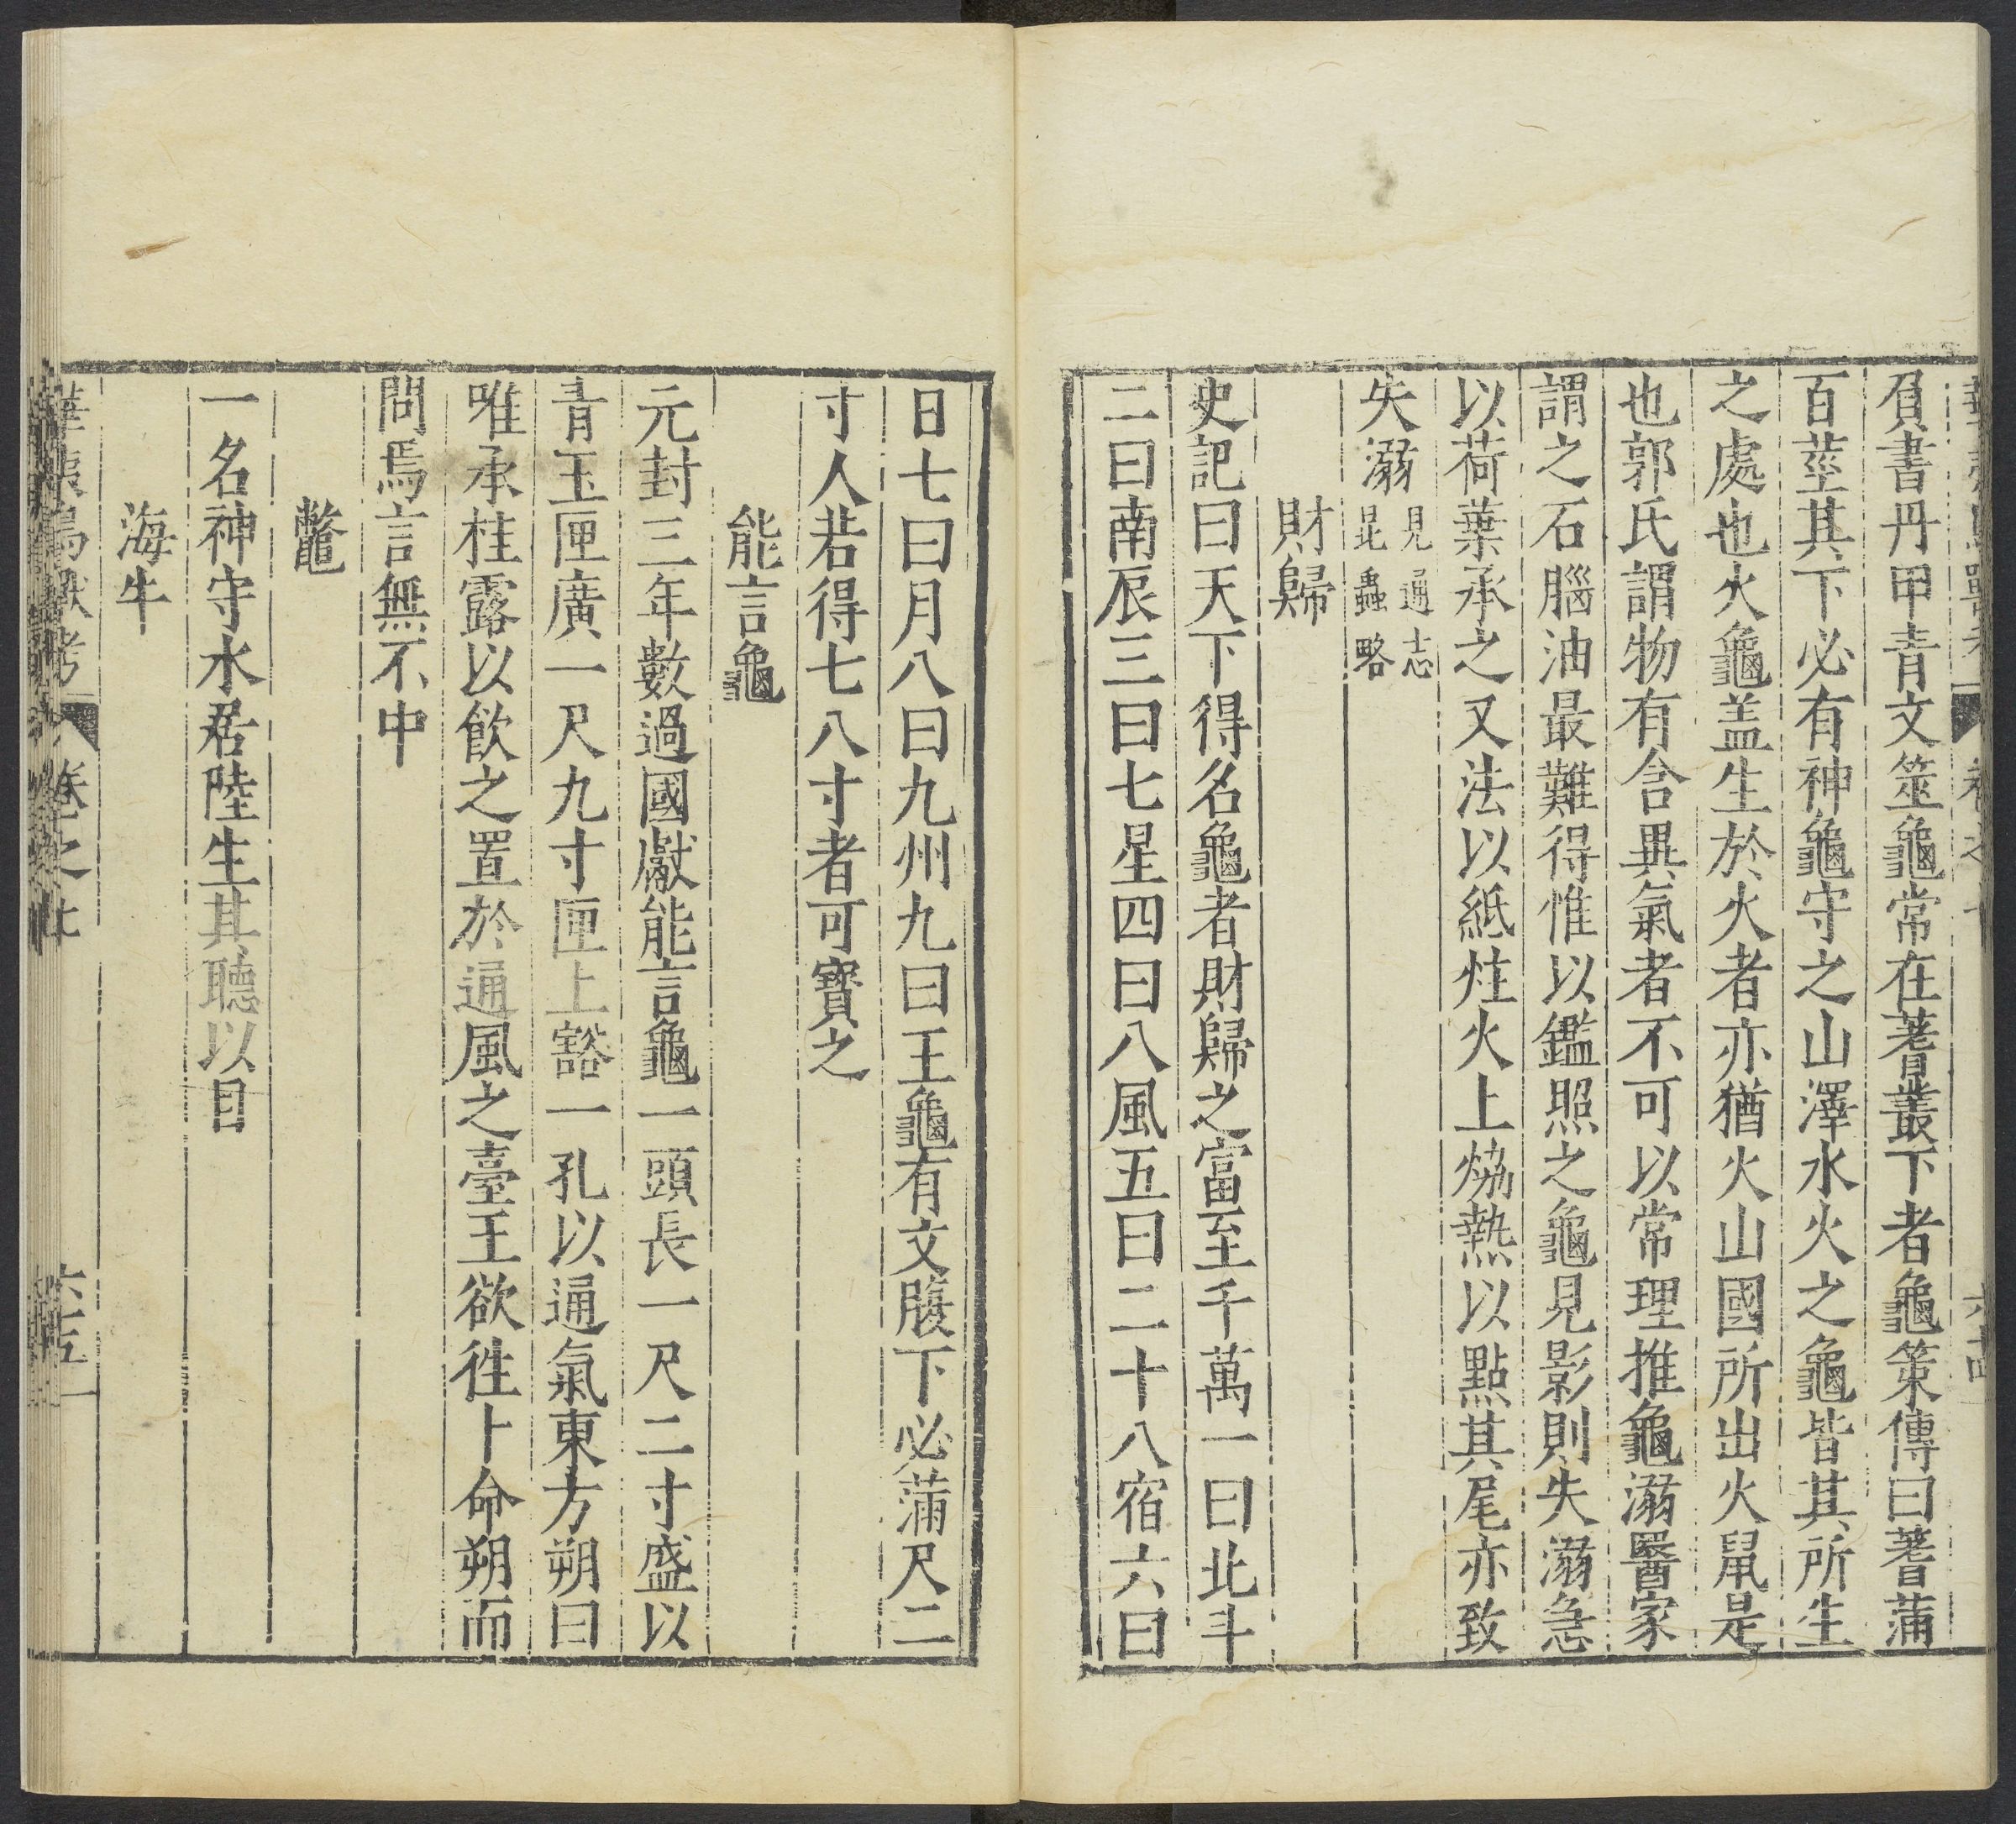 負書丹甲青文筮龜常在蓍叢下者龜策傳曰蓍蒲
百莖其下必有神龜守之山澤水火之龜皆其所生
之處也火龜盖生於火者亦猶火山國所出火鼠是
也郭氏謂物有含異氣者不可以常理推龜溺醫家
謂之石腦油最難得惟以鑑照之龜見影則失溺急
以荷葉承之又法以紙炷火上焫熱以點其尾亦致
失溺見通志
昆蟲略
財歸
史記曰天下得名龜者財歸之富至千萬一曰北斗
二曰南辰三曰七星四曰八風五曰二十八宿六曰
日七曰月八曰九州九曰王龜有文腹下必蒲尺二
寸人若得七八寸者可寶之
能言龜
元封三年數過國獻能言龜一頭長一尺二寸盛以
青玉匣廣一尺九寸匣上豁一孔以通氣東方朔曰
唯承桂露以飲之置於通風之臺王欲徃卜命朔而
問焉言無不中
鼈
一名神守水居陸生其聽以目
海牛
華夷鳥獸考 卷之七 六十五